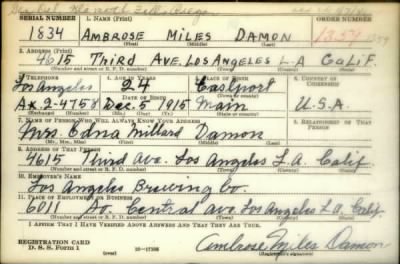 SERIAL NUMBER 1. NAME (Print) ORDER NUMBER
1834 AMBROSE MILES DAMON 1359
(First) (Middle) (Last)
2. ADDRESS (Print)
4615 THIRD AVE. LOS ANGELES L.A CALIF.
(Number and street or R. F. D. number) (Town) (County) (State)
3. TELEPHONE 4. AGE IN YEARS 5. PLACE OF BIRTH 6. COUNTRY OF CITIZENSHIP
Los Angeles 24 Eastport
DATE OF BIRTH
Ax. 2-4758 Dec. 5 1915 Main U.S.A.
7. NAME OF PERSON WHO WILL ALWAYS KNOW YOUR ADDRESS 8. RELATIONSHIP OF THAT PERSON
Mrs. Edna Millard Damon
(Mr., Mrs., Miss) (First) (Middle) (Last)
9. ADDRESS OF THAT PERSON
4615 Third Ave. Los Angeles L.A. Calif
(Number and street or R. F. D. number) (Town) (County) (State)
10. EMPLOYER'S NAME
Los Angeles Brewing Co.
11. PLACE OF EMPLOYMENT OR BUSINESS
6011 So. Central ave Los Angeles L.A. Calif.
(Number and street or R. F. D. number) (Town) (County) (State)
I AFFIRM THAT I HAVE VERIFIED ABOVE ANSWERS AND THAT THEY ARE TRUE.
REGISTRATION CARD
D. S. S. Form 1 Ambrose Miles Damon
(Registrant's signature)